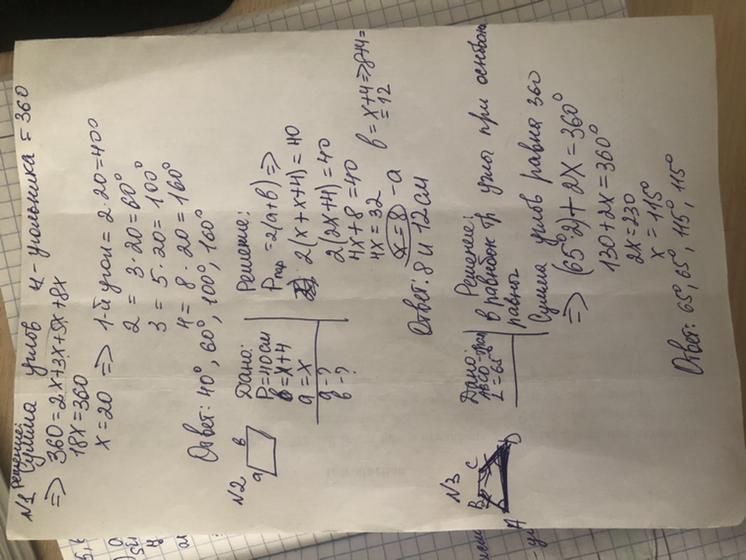 N1 Решение:
Сумма углов 4-угольника = 360
=> 360=2x+3x+5x+8x
18x=360
x=20 => 1-й угол = 2·20=40°
2 = 3·20=60°
3 = 5·20=100°
4 = 8·20=160°
Ответ: 40°, 60°, 100°, 160°
N2
a
в
Дано:
P=40см
в=x+4
a=x
a-?
в-?
Решение:
Pпар =2(a+в) =>
2(x+x+4)=40
2(2x+4)=40
4x+8=40
4x=32
x=8 -a
в=x+4=>8+4=
=12
Ответ: 8 и 12см
N3
A
B
C
D
Дано:
L=65°
Решение:
в равнобок тр. углы при основан
равног
Сумма углов равна 360
=> (65°2)+2x=360°
130+2x=360°
2x=230
x=115°
Ответ: 65°, 65°, 115°, 115°